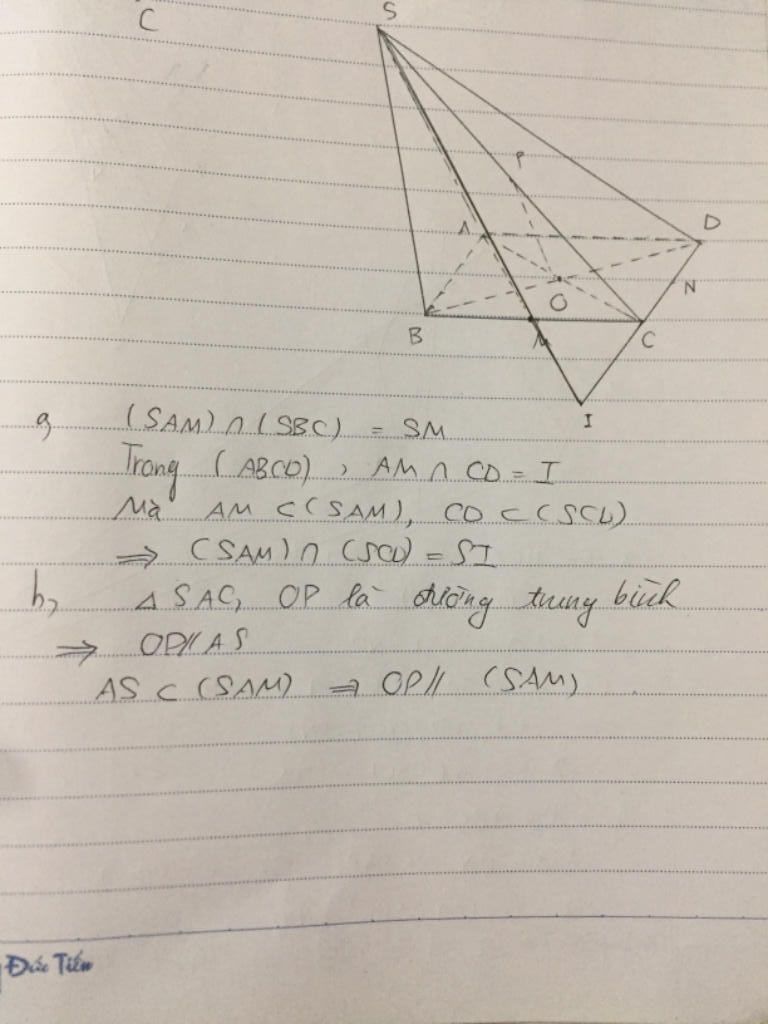 C
S
P
A
D
N
O
B
M
C
I
a, (SAM) ∩ (SBC) = SM
Trong (ABCD), AM ∩ CD = I
Mà AM ⊂ (SAM), CD ⊂ (SCD)
⇒ (SAM) ∩ (SCD) = SI
b, △ SAC, OP là đường trung bình
⇒ OP // AS
AS ⊂ (SAM) ⇒ OP // (SAM)
Đức Tiến